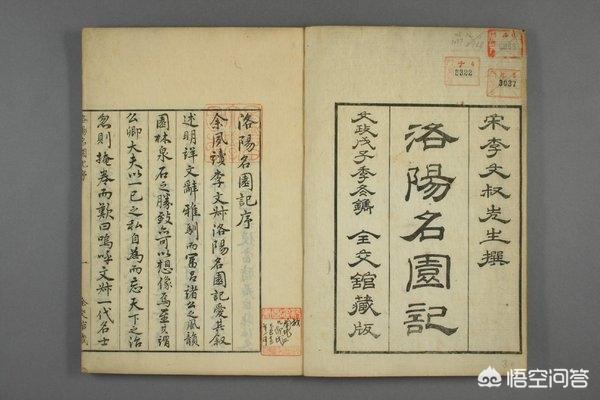 宋李文叔先生撰
洛陽名園記
文政戊子季冬鐫 全交館藏版
3322
3037
洛陽名園記序
余夙讀李文叔洛陽名園記愛其叙
述明詳文辭雅馴而富呂諸公之風韻
園林泉石之勝致亦可以想像焉並其謂
公卿大夫以一己之私自為而忘天下之治
忽則掩卷而歎曰嗚呼文叔一代名士
悟空问答